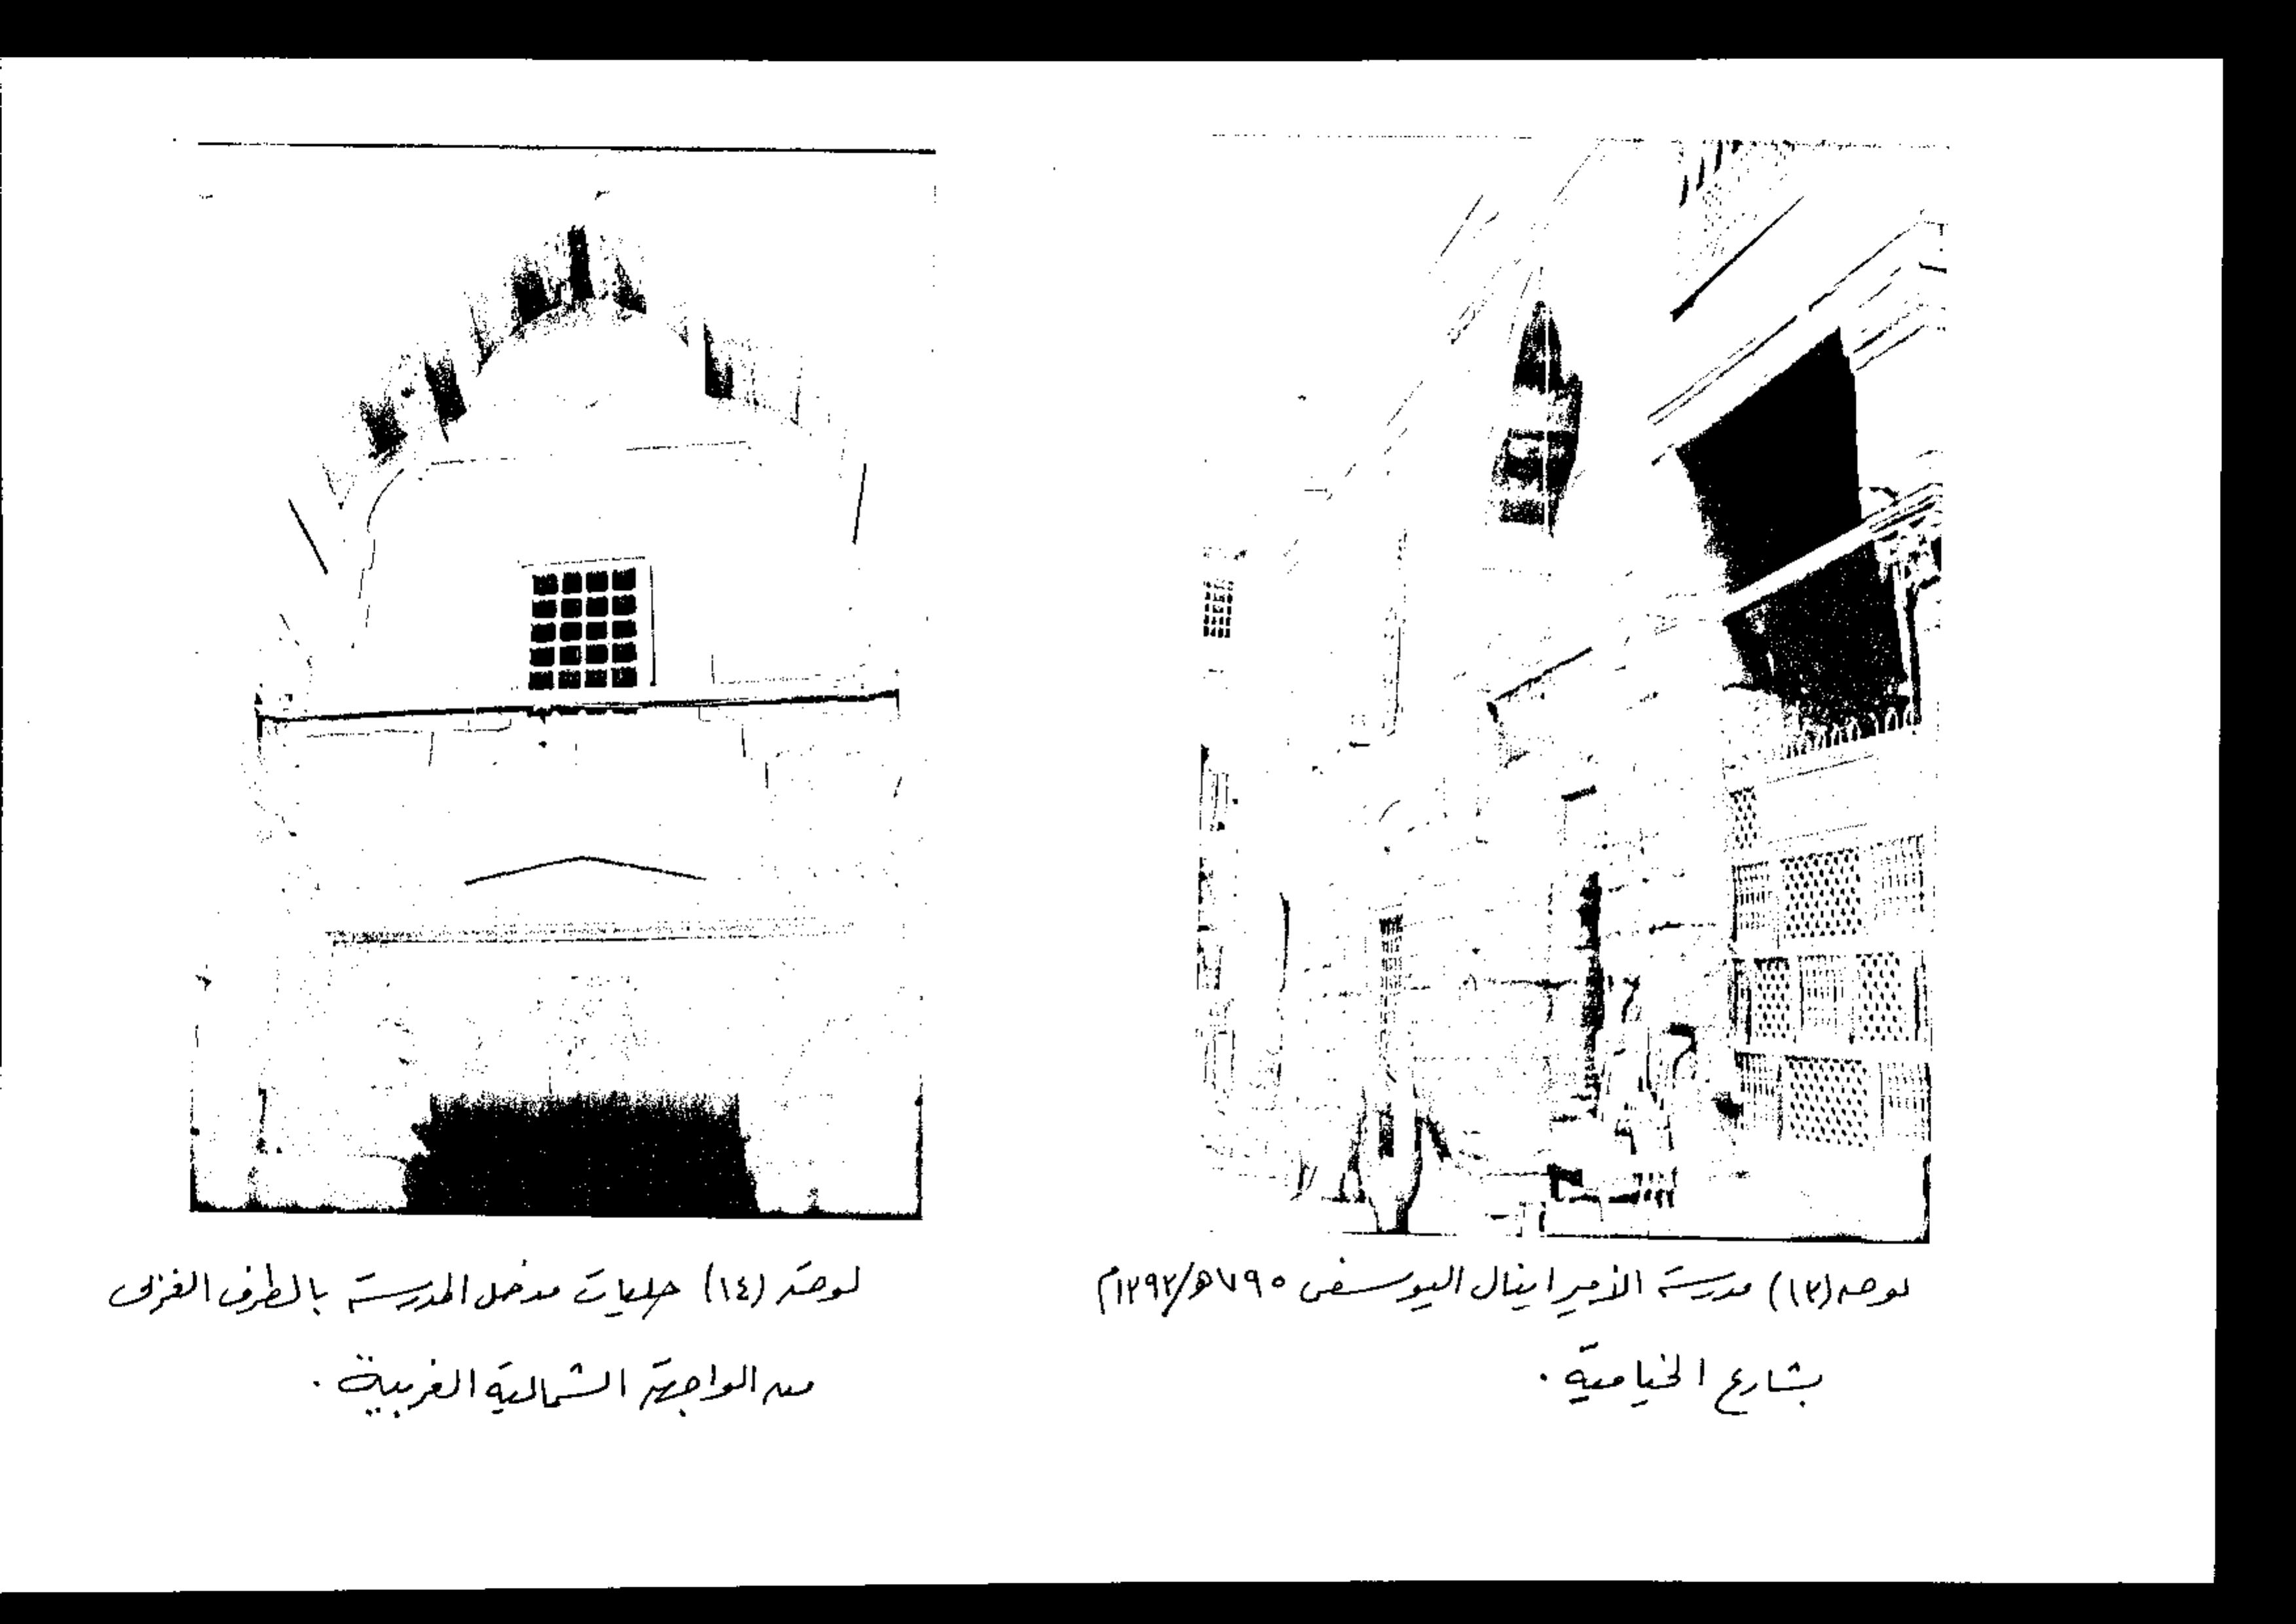 لوحه (١٣) مدرسة الأمير اينال اليوسفى ٧٩٥ه/١٣٩٢م
بشارع الخيامية .
لوحة (١٤) حليات مدخل المدرسة بالطرف الغربى
من الواجهة الشمالية الغربية .